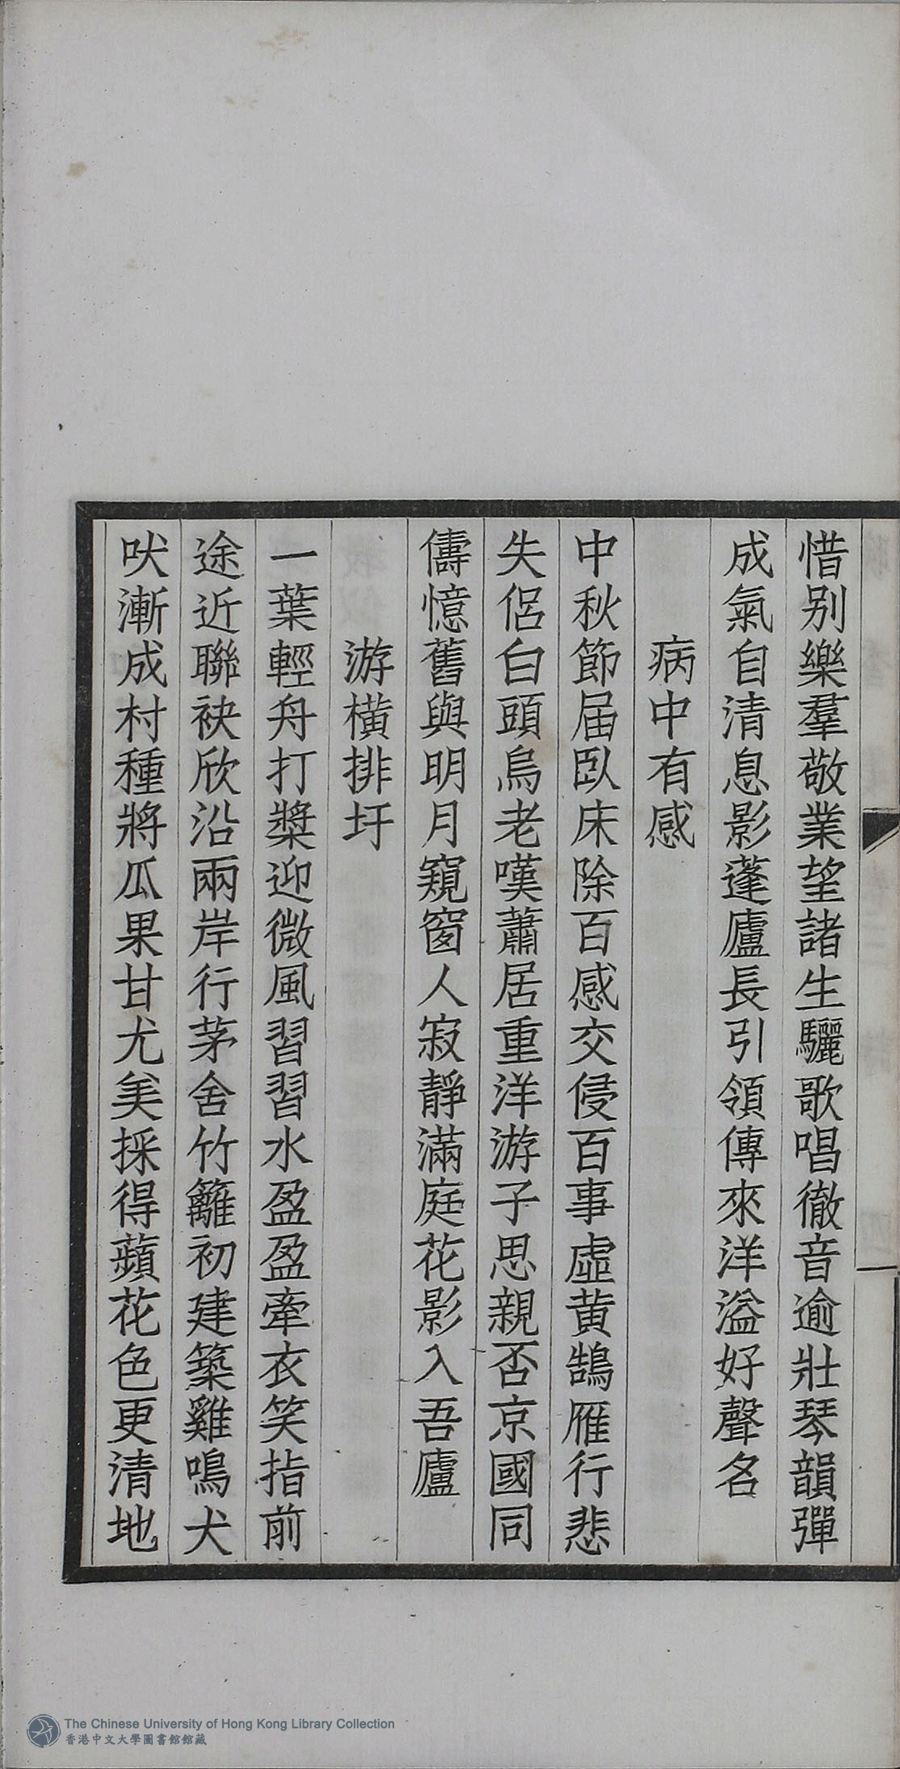 惜别樂羣敬業望諸生驪歌唱徹音逾壯琴韻彈
成氣自清息影蓬廬長引領傳來洋溢好聲名
病中有感
中秋節届臥床除百感交侵百事虛黃鵠雁行悲
失侶白頭烏老嘆蕭居重洋游子思親否京國同
儔憶舊與明月窺窗人寂靜滿庭花影入吾廬
游橫排圩
一葉輕舟打槳迎微風習習水盈盈牽衣笑指前
途近聯袂欣沿兩岸行茅舍竹籬初建築雞鳴犬
吠漸成村種將瓜果甘尤美採得蘋花色更清地
The Chinese University of Hong Kong Library Collection
香港中文大學圖書館館藏